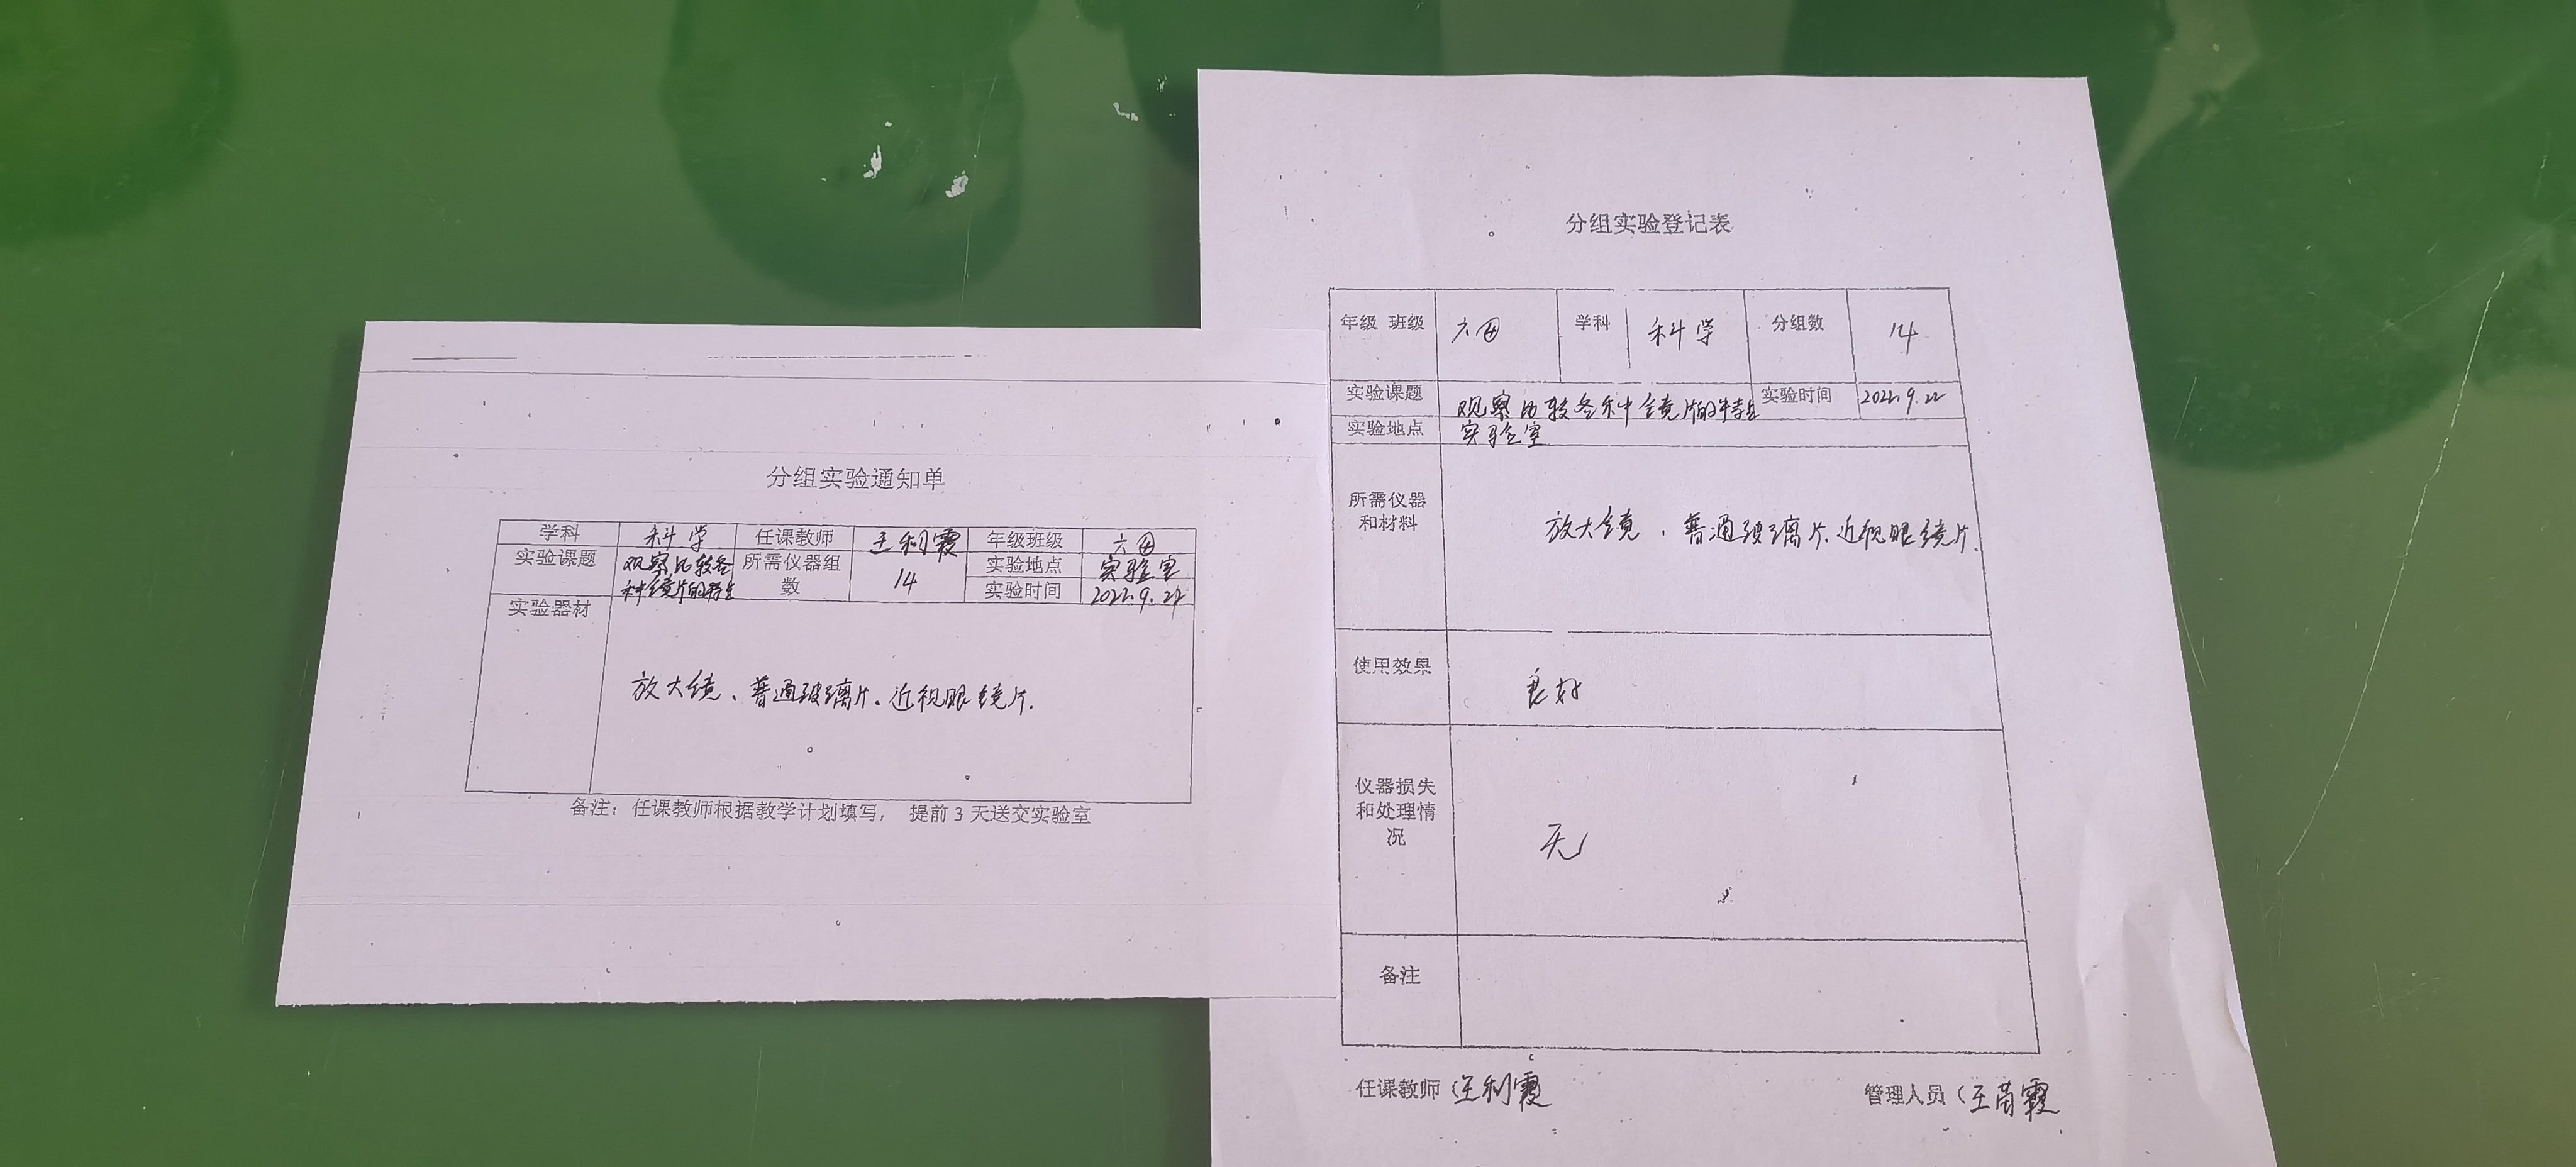 分组实验通知单
学科 科学 任课教师 王利霞 年级班级 六四
实验课题 观察比较各种镜片的特点 所需仪器组数 14 实验地点 实验室
实验时间 2022.9.22
实验器材
放大镜、普通玻璃片、近视眼镜片.
备注：任课教师根据教学计划填写， 提前3天送交实验室
分组实验登记表
年级 班级 六四 学科 科学 分组数 14
实验课题 观察比较各种镜片的特点 实验时间 2022.9.22
实验地点 实验室
所需仪器和材料 放大镜、普通玻璃片、近视眼镜片.
使用效果 良好
仪器损失和处理情况 无
备注
任课教师 王利霞 管理人员